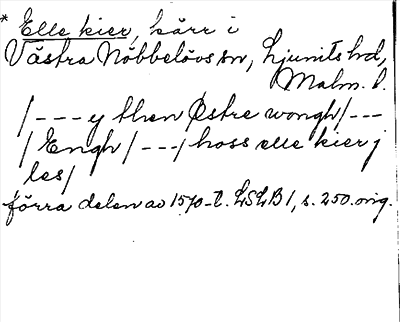 * Elle kier, kärr i
Västra Nöbbelövs sn, Ljunits hd,
Malm. l.
/ - - - y then Østre wongh / - - -
/ Engh / - - - / hoss elle kier j
les /
förra delen av 1570-t. LSLB 1, s. 250. orig.